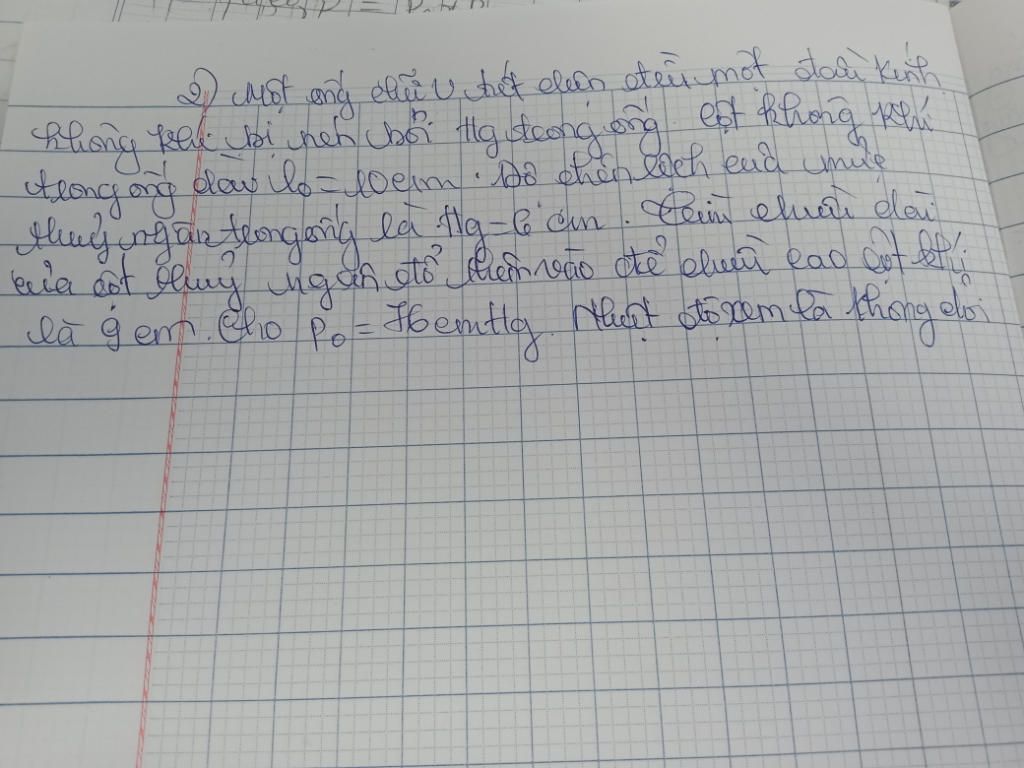 2) Một ống chữ U tiết diện đều một đoầu kính
không khí bị nén bởi Hg trong ống. Cột không khí
trong ống dài l₀ = 10cm. Độ chênh lệch của mực
thuỷ ngân trong ống là Hg = 6 cm. Tìm chiều dài
của cột thuỷ ngân đổ thêm vào để chiều cao cột khí
là 9 cm. Cho P₀ = 76cmHg. Nhiệt độ xem là không đổi